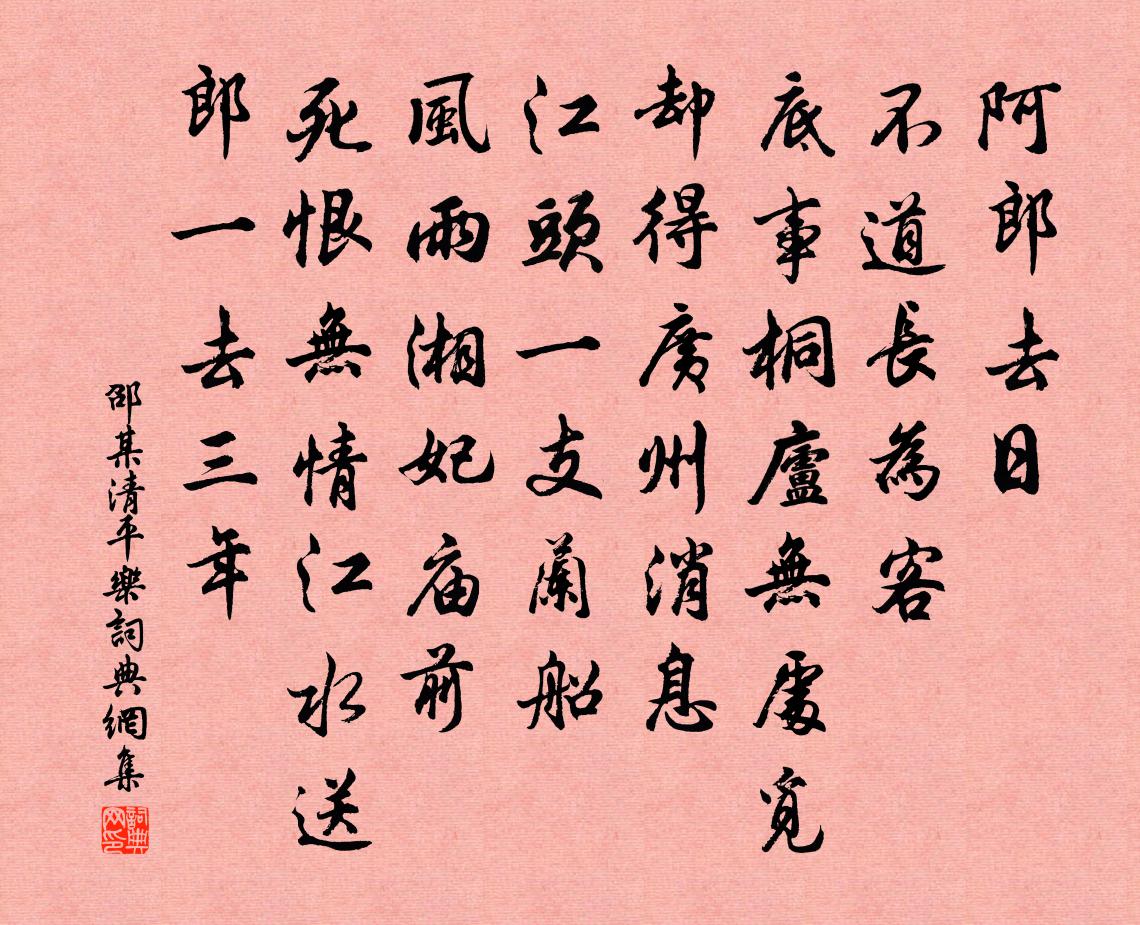 阿郎去日
不道長為客
底事桐廬無處覓
却得廣州消息
江頭一支蘭船
風雨湘妃廟前
死恨無情江水送
郎一去三年
邵某清平樂詞典網集
詞典网印